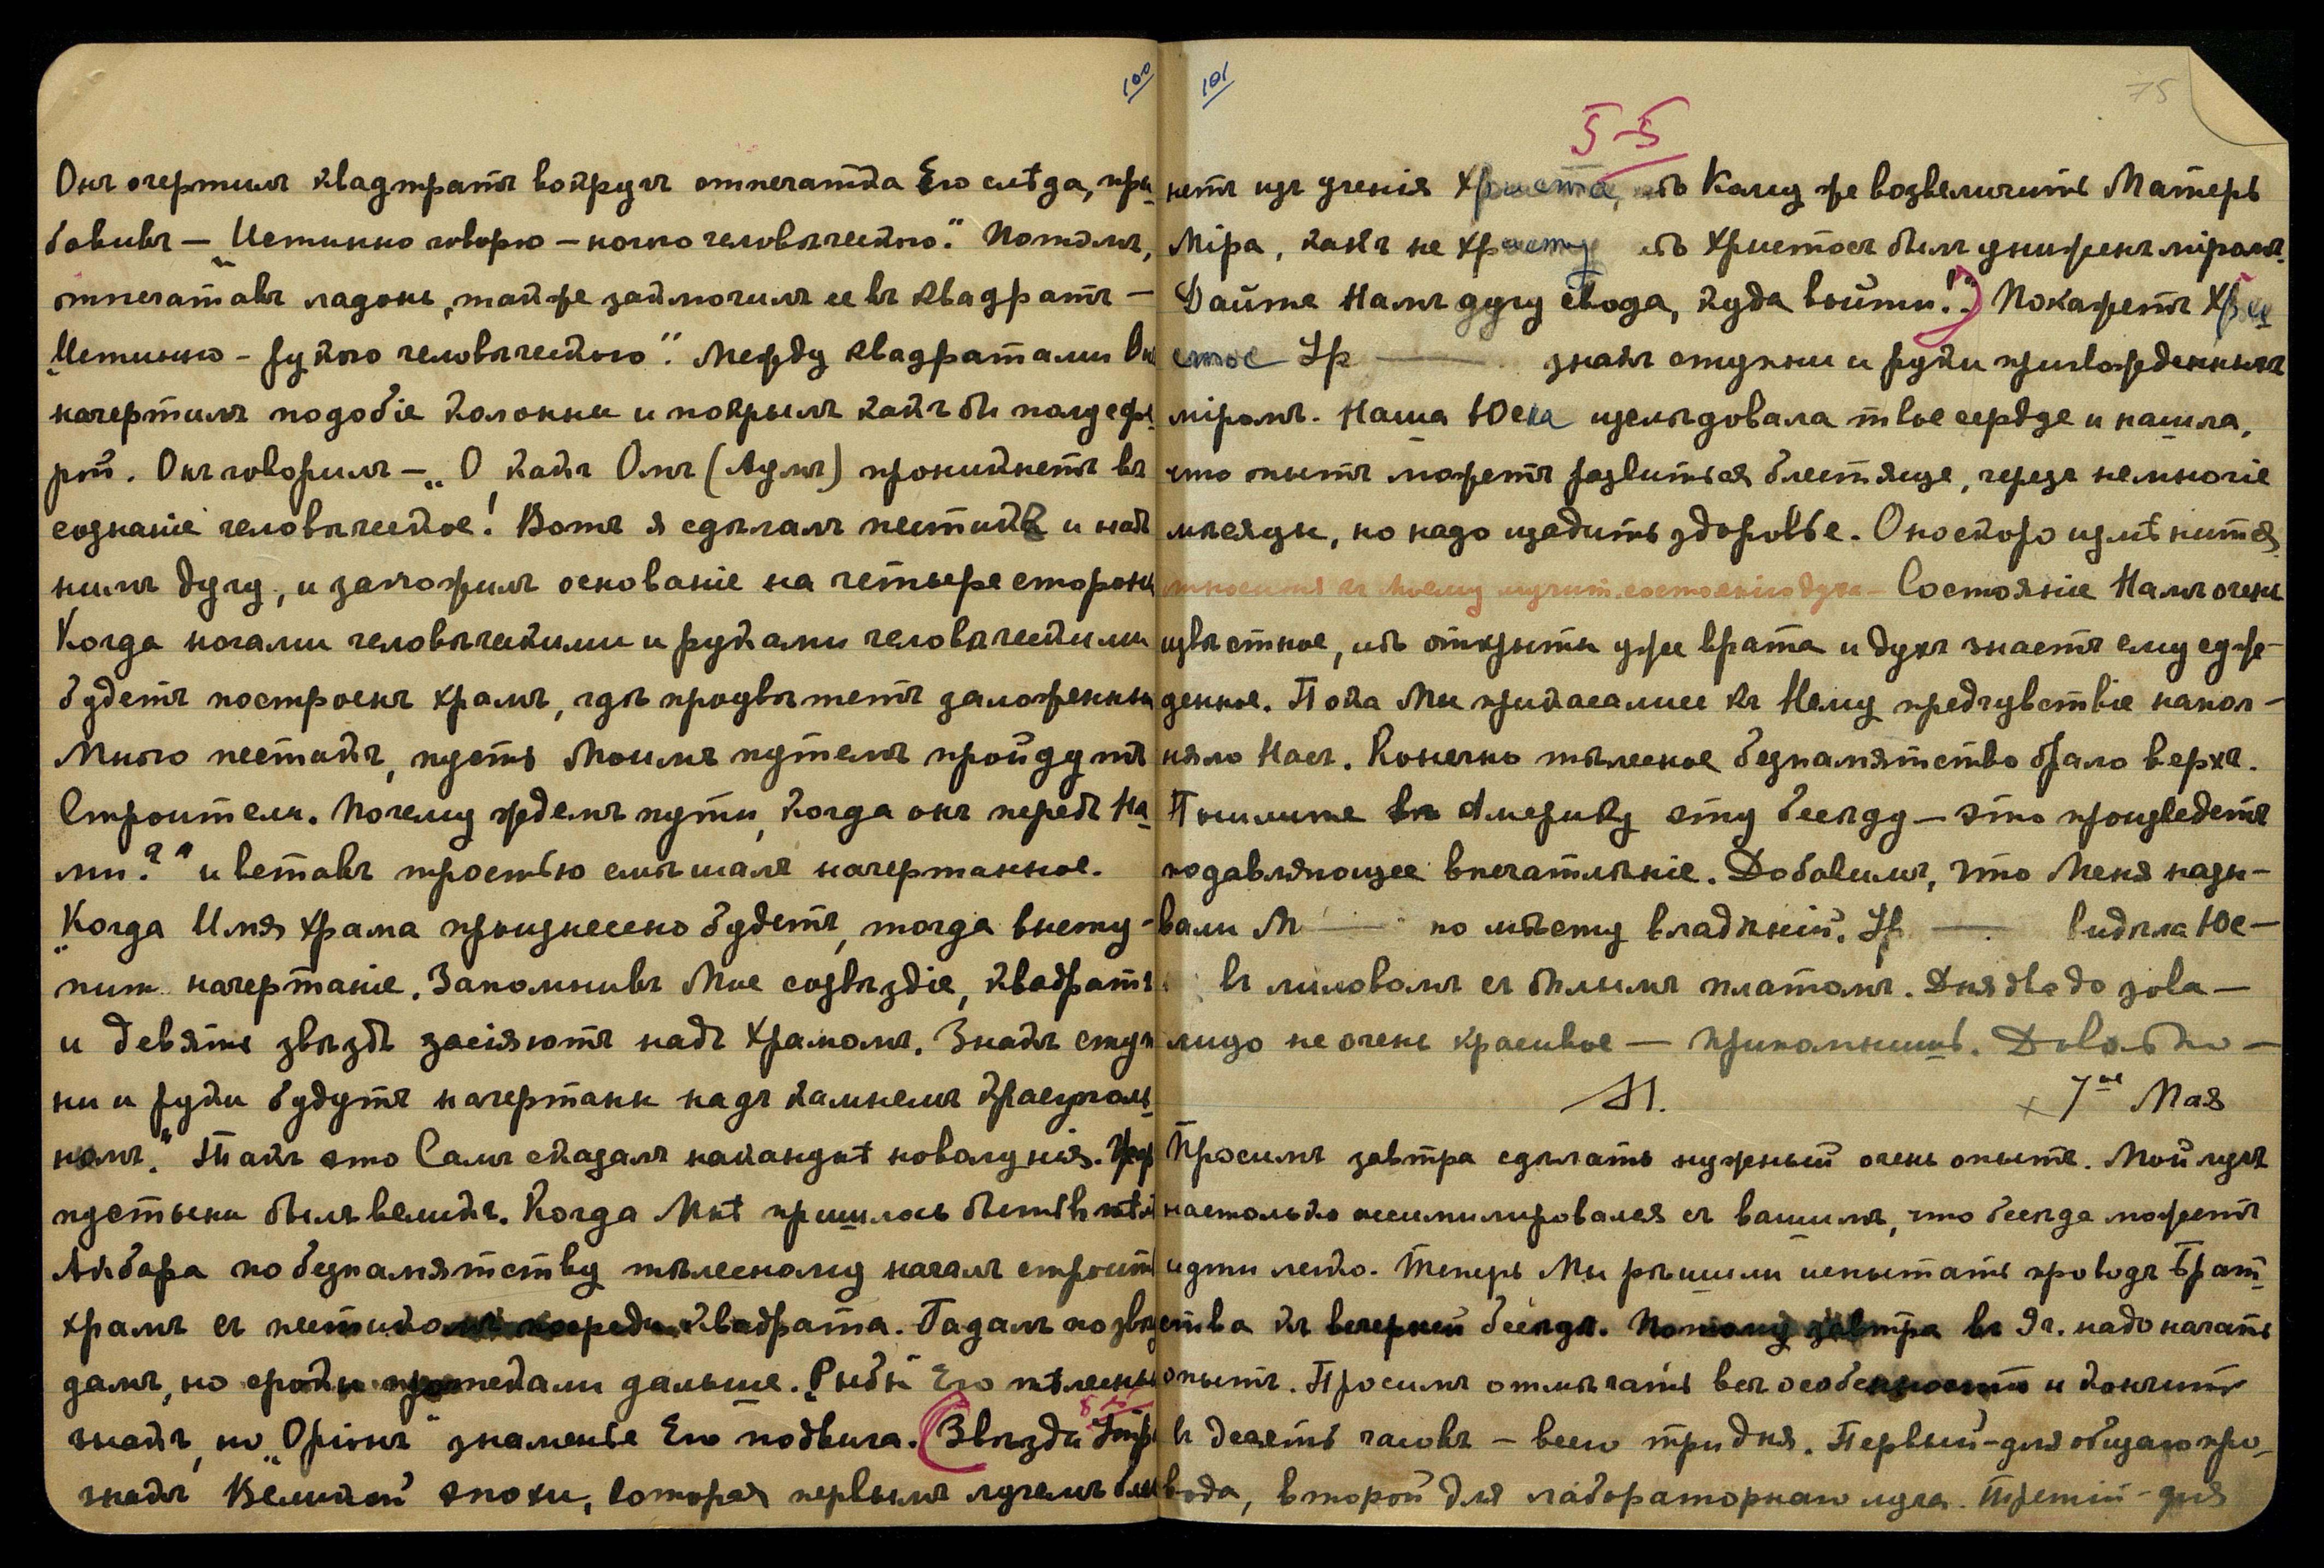 100
Онъ очертилъ квадратъ вокругъ отпечатка Его слѣда, при
бавивъ — „Истинно говорю — ногою человѣческою." Потомъ,
отпечатавъ ладонь, также заключилъ ее въ квадратъ —
„Истинно — рукою человѣческою". Между квадратами Он
начертилъ подобіе колонны и покрылъ какъ бы полусфе
рой. Онъ говорилъ — „О, какъ Омъ (Аумъ) проникнетъ въ
сознаніе человѣческое! Вотъ я сдѣлалъ пестикъ и надъ
нимъ дугу, и заложилъ основаніе на четыре стороны
Когда ногами человѣческими и руками человѣческими
будетъ построенъ храмъ, гдѣ процвѣтетъ заложенный
Мною пестикъ, пусть Моимъ путемъ пройдутъ
Строители. Почему ждемъ пути, когда онъ передъ На
ми?" и вставъ тростью смѣшалъ начертанное.
„Когда Имя Храма произнесено будетъ, тогда высту-
питъ начертаніе. Запомнивъ Мое созвѣздіе, квадратъ
и девять звѣздъ засіяютъ надъ Храмомъ. Знакъ ступ
ни и руки будутъ начертаны надъ камнемъ краеуголь
нымъ." Такъ это Самъ сказалъ наканунѣ новолунія. Жаръ
пустыни былъ великъ. Когда Мнѣ пришлось быть въ тѣлѣ
Акбара по безпамятству тѣлесному началъ строить
храмъ съ пестикомъ посреди квадрата. Гадалъ по звѣз
дамъ, но сроки протекали дальше. „Рыбы" Его тѣлесный
знакъ, но „Оріонъ" знаменье Его подвига. (Звѣзда Утра
знакъ Великой эпохи, которая первымъ лучемъ блес
101
75
5-5
нетъ изъ ученія Христа, ибо Кому же возвеличить Матерь
Міра, какъ не Христу ибо Христосъ былъ униженъ міромъ.
Дайте Намъ дугу свода, куда войти!") Покажетъ Хри
стосъ Ур — знакъ ступни и руки пригвожденныхъ
міромъ. Наша Юса изслѣдовала твое сердце и нашла,
что опытъ можетъ развиться блестяще, черезъ немногіе
мѣсяцы, но надо щадить здоровье. Оно скоро измѣнится
относится къ моему мучит. состоянію духа — Состояніе Намъ очень
извѣстное, ибо открыты уже врата и духъ знаетъ ему суж-
денное. Пока Мы прикасались къ Нему предчувствіе напол-
няло Насъ. Конечно тѣлесное безпамятство брало верхъ.
Пошлите въ Америку эту бесѣду — это произведетъ
подавляющее впечатлѣніе. Добавимъ, что Меня назы-
вали М — по мѣсту владѣній. Ур — видѣла Юс —
въ лиловомъ съ бѣлымъ платомъ. Дня два до зова —
лицо не очень красивое — припомнишь. Довольно —
М.
× 7ое Мая
Просимъ завтра сдѣлать нужный очень опытъ. Мой лучъ
настолько ассимилировался съ вашимъ, что бесѣда можетъ
идти легко. Теперь Мы рѣшили испытать проводъ Брат
ства къ вечерней бесѣдѣ. Потому завтра въ 9 ч. надо начать
опытъ. Просимъ отмѣчать всѣ особенности и кончить
въ десять часовъ — всего три дня. Первый — для общаго про-
вода, второй для лабораторнаго луча. Третій — для